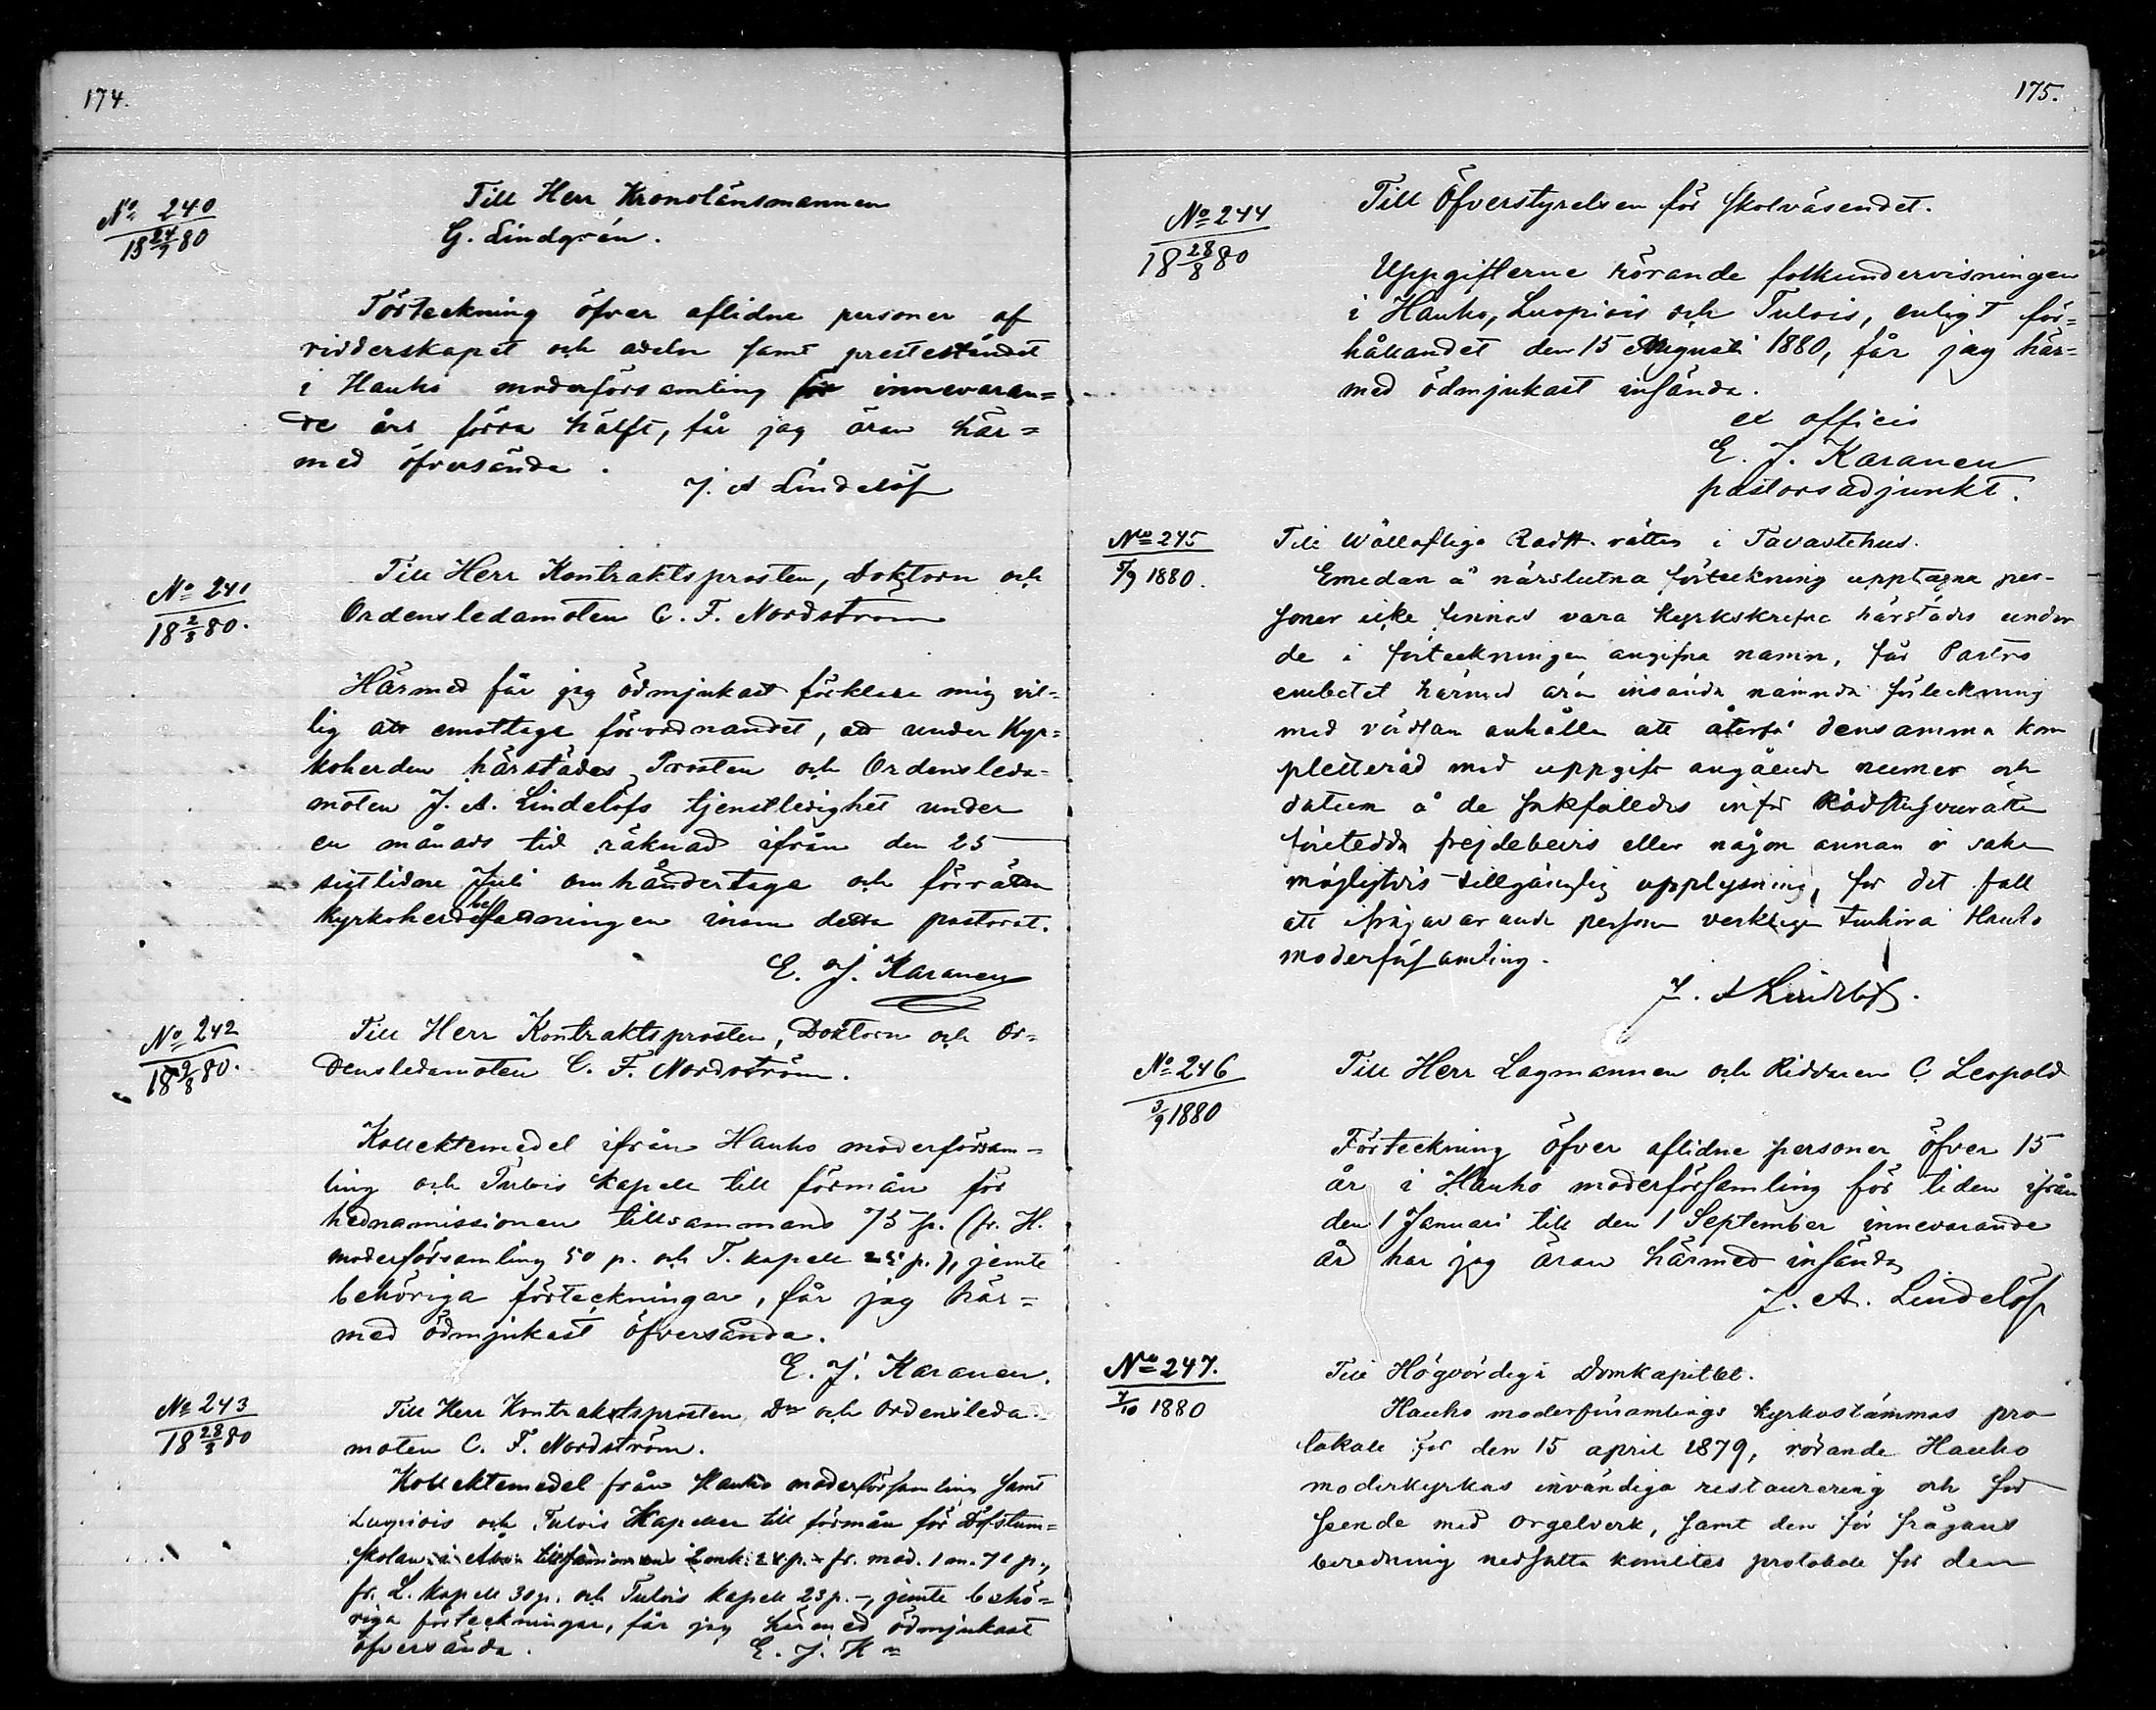 174.
No 240
18 24/7 80
Till Herr Kronolänsmannen
G. Lindgrén.
Förteckning öfver aflidne personer af
ridderskapet och adeln samt presteståndet
i Hauho moderförsamling för innevaran=
de års förra hälft, får jag äran här=
med öfversända.
J. A Lindelöf
No 241
18 2/8 80.
Till Herr Kontraktsprosten, Doktorn och
Ordensledamoten C. F. Nordström
Härmed får jag ödmjukast förklara mig vil=
lig att emottaga förordnandet, att under Kyr=
koherden härstädes, Prosten och Ordensleda=
moten J. A. Lindelöfs tjenstledighet under
en månads tid räknad ifrån den 25
sistlidne Juli omhändertaga och förrätta
kyrkoherdebefattningen inom detta pastorat.
E. J. Karanen
No 242
18 9/8 80.
Till Herr Kontraktsprosten, Doktorn och Or=
densledamoten C. F. Nordström.
Kollektemedel ifrån Hauho moderförsam=
ling och Tulois kapell till förmån för
hednamissionen tillsammans 75 p. (fr. H.
moderförsamling 50 p. och T. kapell 25 p.), jemte
behöriga förteckningar, får jag här=
med ödmjukast öfversända.
E. J. Karanen.
No 243
18 28/8 80
Till Herr Kontraktsprosten, Dn och Ordensleda=
moten C. F. Nordström.
Kollektemedel från Hauho moderförsamling samt
Luopiois och Tulois Kapeller till förmån för Döfstum=
skolan i Åbo tillsammans 2 mk. 24 p. - fr. mod. 1 m. 71 p.,
fr. L. kapell 30 p. och Tulois kapell 23 p. -, jemte behö=
riga förteckningar, får jag härmed ödmjukast
öfversända.
E. J. Kn
175.
No 244
18 28/8 80
Till Öfverstyrelsen för Skolväsendet.
Uppgifterne rörande folkundervisningen
i Hauho, Luopiois och Tulois, enligt för=
hållandet den 15 Augusti 1880, får jag här=
med ödmjukast insända.
ex officio
E. J. Karanen
pastorsadjunkt.
No 245
5/9 1880.
Till Wällofliga Rådst. rätten i Tavastehus.
Emedan å närslutna förteckning upptagna per-
soner icke finnas vara kyrkskrefne härstädes under
de i förteckningen angifna namn, får Pastors
embetet härmed äran insända nämnda förteckning
med vördsam anhållan att återfå densamma kom
pletterad med uppgift angående numer och
datum å de sakfälldes inför Rådstugurätten
företedda frejdebevis eller någon annan i saken
möjligtvis tillgänglig upplysning, för det fall
att ifrågavarande personer verkligen tillhöra Hauho
moderförsamling.
J. A Lindelöf.
No 246
3/9 1880
Till Herr Lagmannen och Riddaren C Leopold
Förteckning öfver aflidne personer öfver 15
år i Hauho moderförsamling för tiden ifrån
den 1 Januari till den 1 September innevarande
år har jag äran härmed insända
J. A. Lindelöf
No 247.
7/10 1880
Till Högvördiga Domkapitlet.
Hauho moderförsamlings kyrkostämmas pro
tokoll för den 15 april 1879, rörande Hauho
moderkyrkas invändiga restaurering och för
seende med orgelverk, samt den för frågans
beredning nedsatta komités protokoll för den